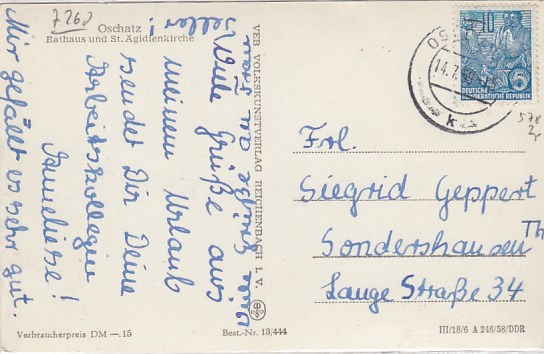 7260
Oschatz
Rathaus und St. Ägidienkirche
Viele Grüße aus
meinem Urlaub
sendet Dir Deine
Arbeitskollegin
Anneliese!
Mir gefällt es sehr gut.
Grüße an Frau
Seller!
VEB VOLKSKUNSTVERLAG REICHENBACH I. V.
Verbraucherpreis DM —.15
Best.-Nr. 13/444
10
DEUTSCHE
DEMOKRATISCHE REPUBLIK
5
OS
14.7.59
k
578
Frl.
Siegrid Geppert
Sondershausen Th
Lange Straße 34
III/18/6 A 246/58/DDR